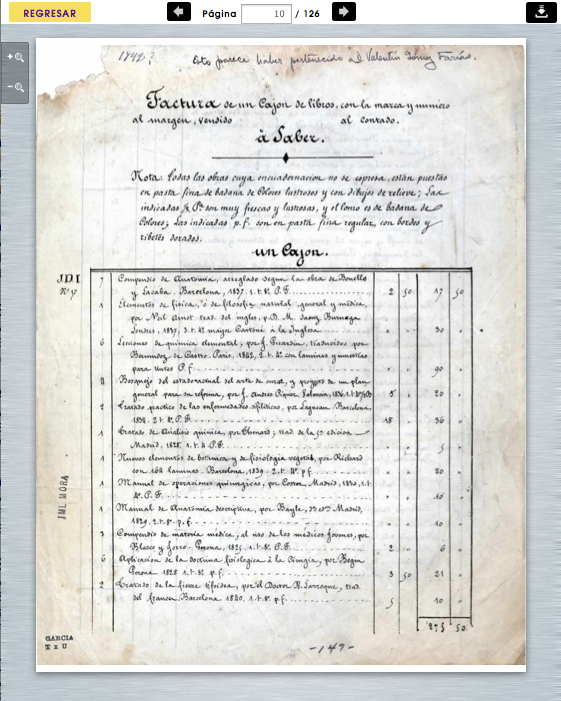 REGRESAR
Página 10 / 126
1842? Esto parece haber pertenecido a D. Valentín Gómez Farías.
Factura de un Cajon de libros, con la marca y numero
al margen, vendido al contado.
à Saber.
Nota: Todas las obras cuya encuadernacion no se espresa, están puestas
en pasta fina de badana de Colores lustrosos y con dibujos de relieve; Las
indicadas son muy frescas y lustrosas, y el lomo es de badana de
Colores; Las indicadas p.f. son en pasta fina regular, con bordes y
ribetes dorados.
un Cajon.
7 Compendio de Anatomia, arreglado segun la obra de Bonells
y Lacaba. Barcelona, 1837. 1. t. 8º P.F. 2 50 17 50
1 Elementos de fisica, ó de filosofia natural, general y médica,
por Neil Arnot trad. del ingles, p. D. M. Saenz
Londres, 1837, 3. t. 4º mayor Cartoné à la Inglesa 30
6 Lecciones de quimica elemental, por J. Girardin, traducidas por
Bermudez de Castro. Paris, 1842, 2. t. 4º con laminas y muestras
para tintes P.f. 90
4 Bosquejo del estado actual del arte de curar, y proyecto de un plan
general para su reforma, por J. Andres Piquer, Valencia, 1836. 1. t. 5 20
2 Tratado practico de las enfermedades sifiliticas, por Lagneau. Barcelona,
1838. 2. t. 8º P.F. 18 36
1 Tratado de Análisis quimica, por Thenard; trad. de la 5ª edicion
Madrid, 1828, 1. t. 4. P.F. 5
1 Nuevos elementos de botanica y de fisiologia vegetal, por Richard
con 164 laminas. Barcelona, 1839. 2. t. 4º p.f. 20
1 Manual de operaciones quirurgicas, por Coster, Madrid, 1830, 1. t
8º. P.F. 10
1 Manual de Anatomia descriptiva, por Bayle, Madrid,
1829, 2. t. 8º p.f. 10
3 Compendio de materia médica, al uso de los médicos jovenes, por
Blasco y Jorro. Gerona, 1825. 1. t. 8º P.F. 2 6
6 Aplicacion de la doctrina fisiologica à la Cirugia, por Begin
Gerona 1828 1. t. 8º p.f. 3 50 21
2 Tratado de la fiebre tifoidea, por el Doctor R. Larroque, trad.
del frances. Barcelona 1840. 1. t. 8º p.f. 5 10
275 50
JDI
Nº 7
JML MORA
GARCIA
T x U
-147-